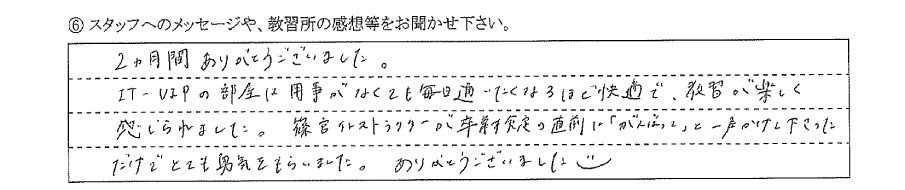 ⑥ スタッフへのメッセージや、教習所の感想等をお聞かせ下さい。
2ヵ月間 ありがとうございました。
IT-VIPの部屋は用事がなくても毎日通いたくなるほど快適で、教習が楽しく
感じられました。 篠宮インストラクターが卒業検定の直前に「がんばって」と一声かけて下さった
だけでとても勇気をもらいました。 ありがとうございました